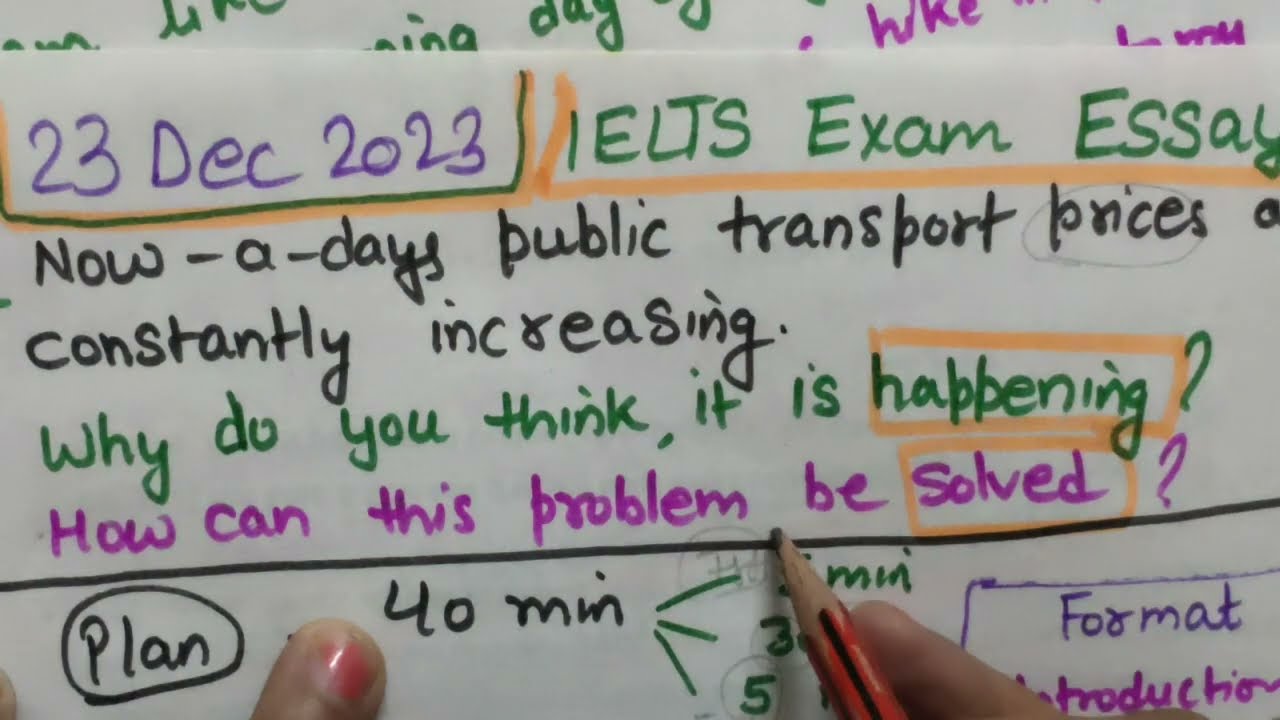 like day
23 Dec 2023 IELTS Exam Essay
Now-a-days public transport prices
constantly increasing.
Why do you think, it is happening?
How can this problem be solved?
Plan 40 min min
Format
5